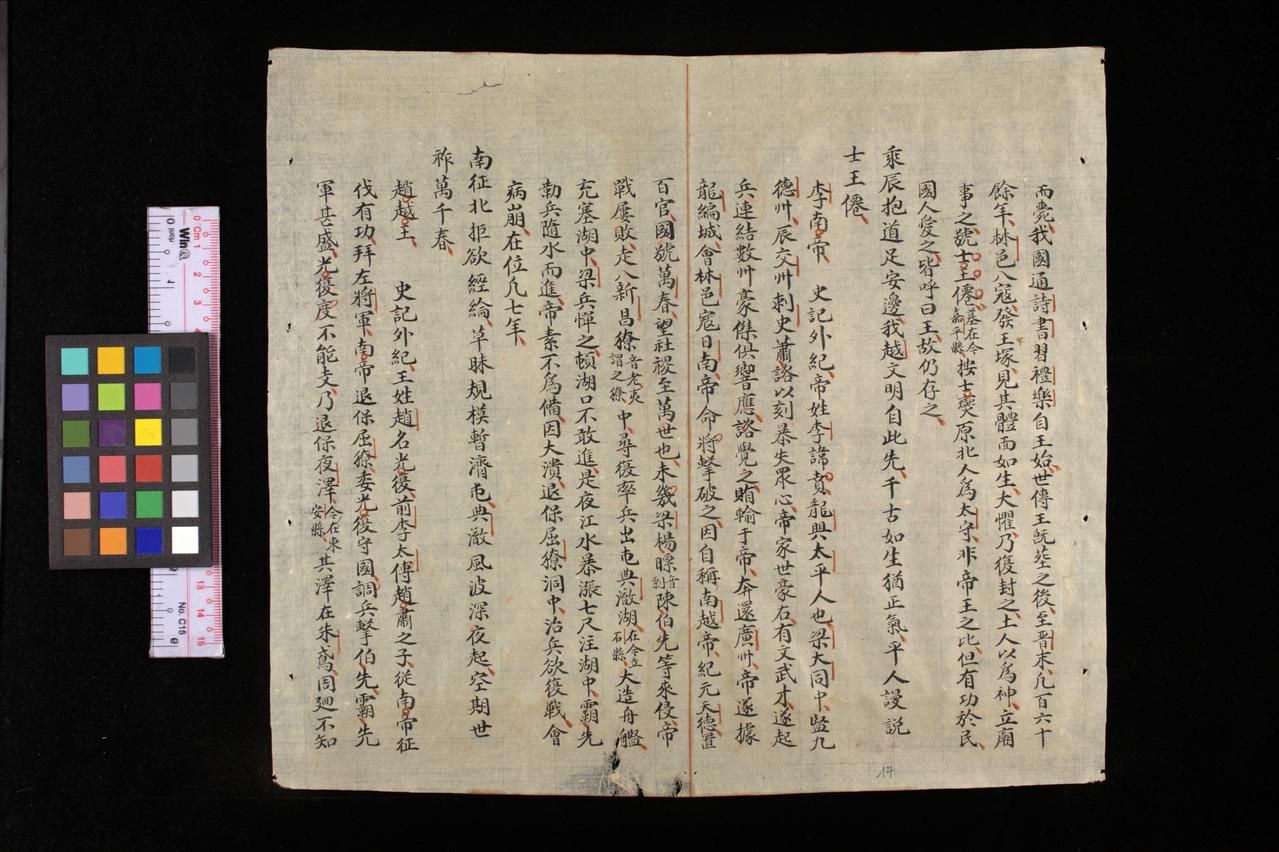 而薨我國通詩書習禮樂自王始世傳王旣塟之後至晋末凡百六十
餘年林邑入寇發王塚見其體面如生大懼乃復封之土人以爲神立廟
事之號士王僊墓在今嘉平縣按士燮原北人爲太守非帝王之比但有功於民
國人愛之皆呼曰王故仍存之
乘辰抱道足安邊我越文明自此先千古如生猶正氣乎人謾説
士王僊
李南帝 史記外紀帝姓李諱賁龍興太平人也梁大同中監九
德州辰交州刺史蕭諮以刻暴失衆心帝家世豪右有文武才遂起
兵連結數州豪傑俱響應諮覺之賄輸于帝奔還廣州帝遂據
龍編城會林邑寇日南帝命將擊破之因自稱南越帝紀元天德置
百官國號萬春望社稷至萬世也未幾梁楊㬓音剽陳伯先等來侵帝
戰屡敗走入新昌獠音老夷謂之獠中尋復率兵出屯典澈湖在今立石縣大造舟艦
充塞湖中梁兵憚之頓湖口不敢進是夜江水暴漲七尺注湖中霸先
勒兵隨水而進帝素不爲備因大潰退保屈獠洞中治兵欲復戰會
病崩在位凡七年
南征北拒欲經綸草昧規模暫濟屯典澈風波深夜起空期世
祚萬千春
趙越王 史記外紀王姓趙名光復前李太傅趙肅之子從南帝征
伐有功拜左將軍南帝退保屈獠委光復守國調兵擊伯先霸先
軍甚盛光復度不能支乃退保夜澤今在東安縣其澤在朱鳶周廻不知
17
Cm 1
No. C15